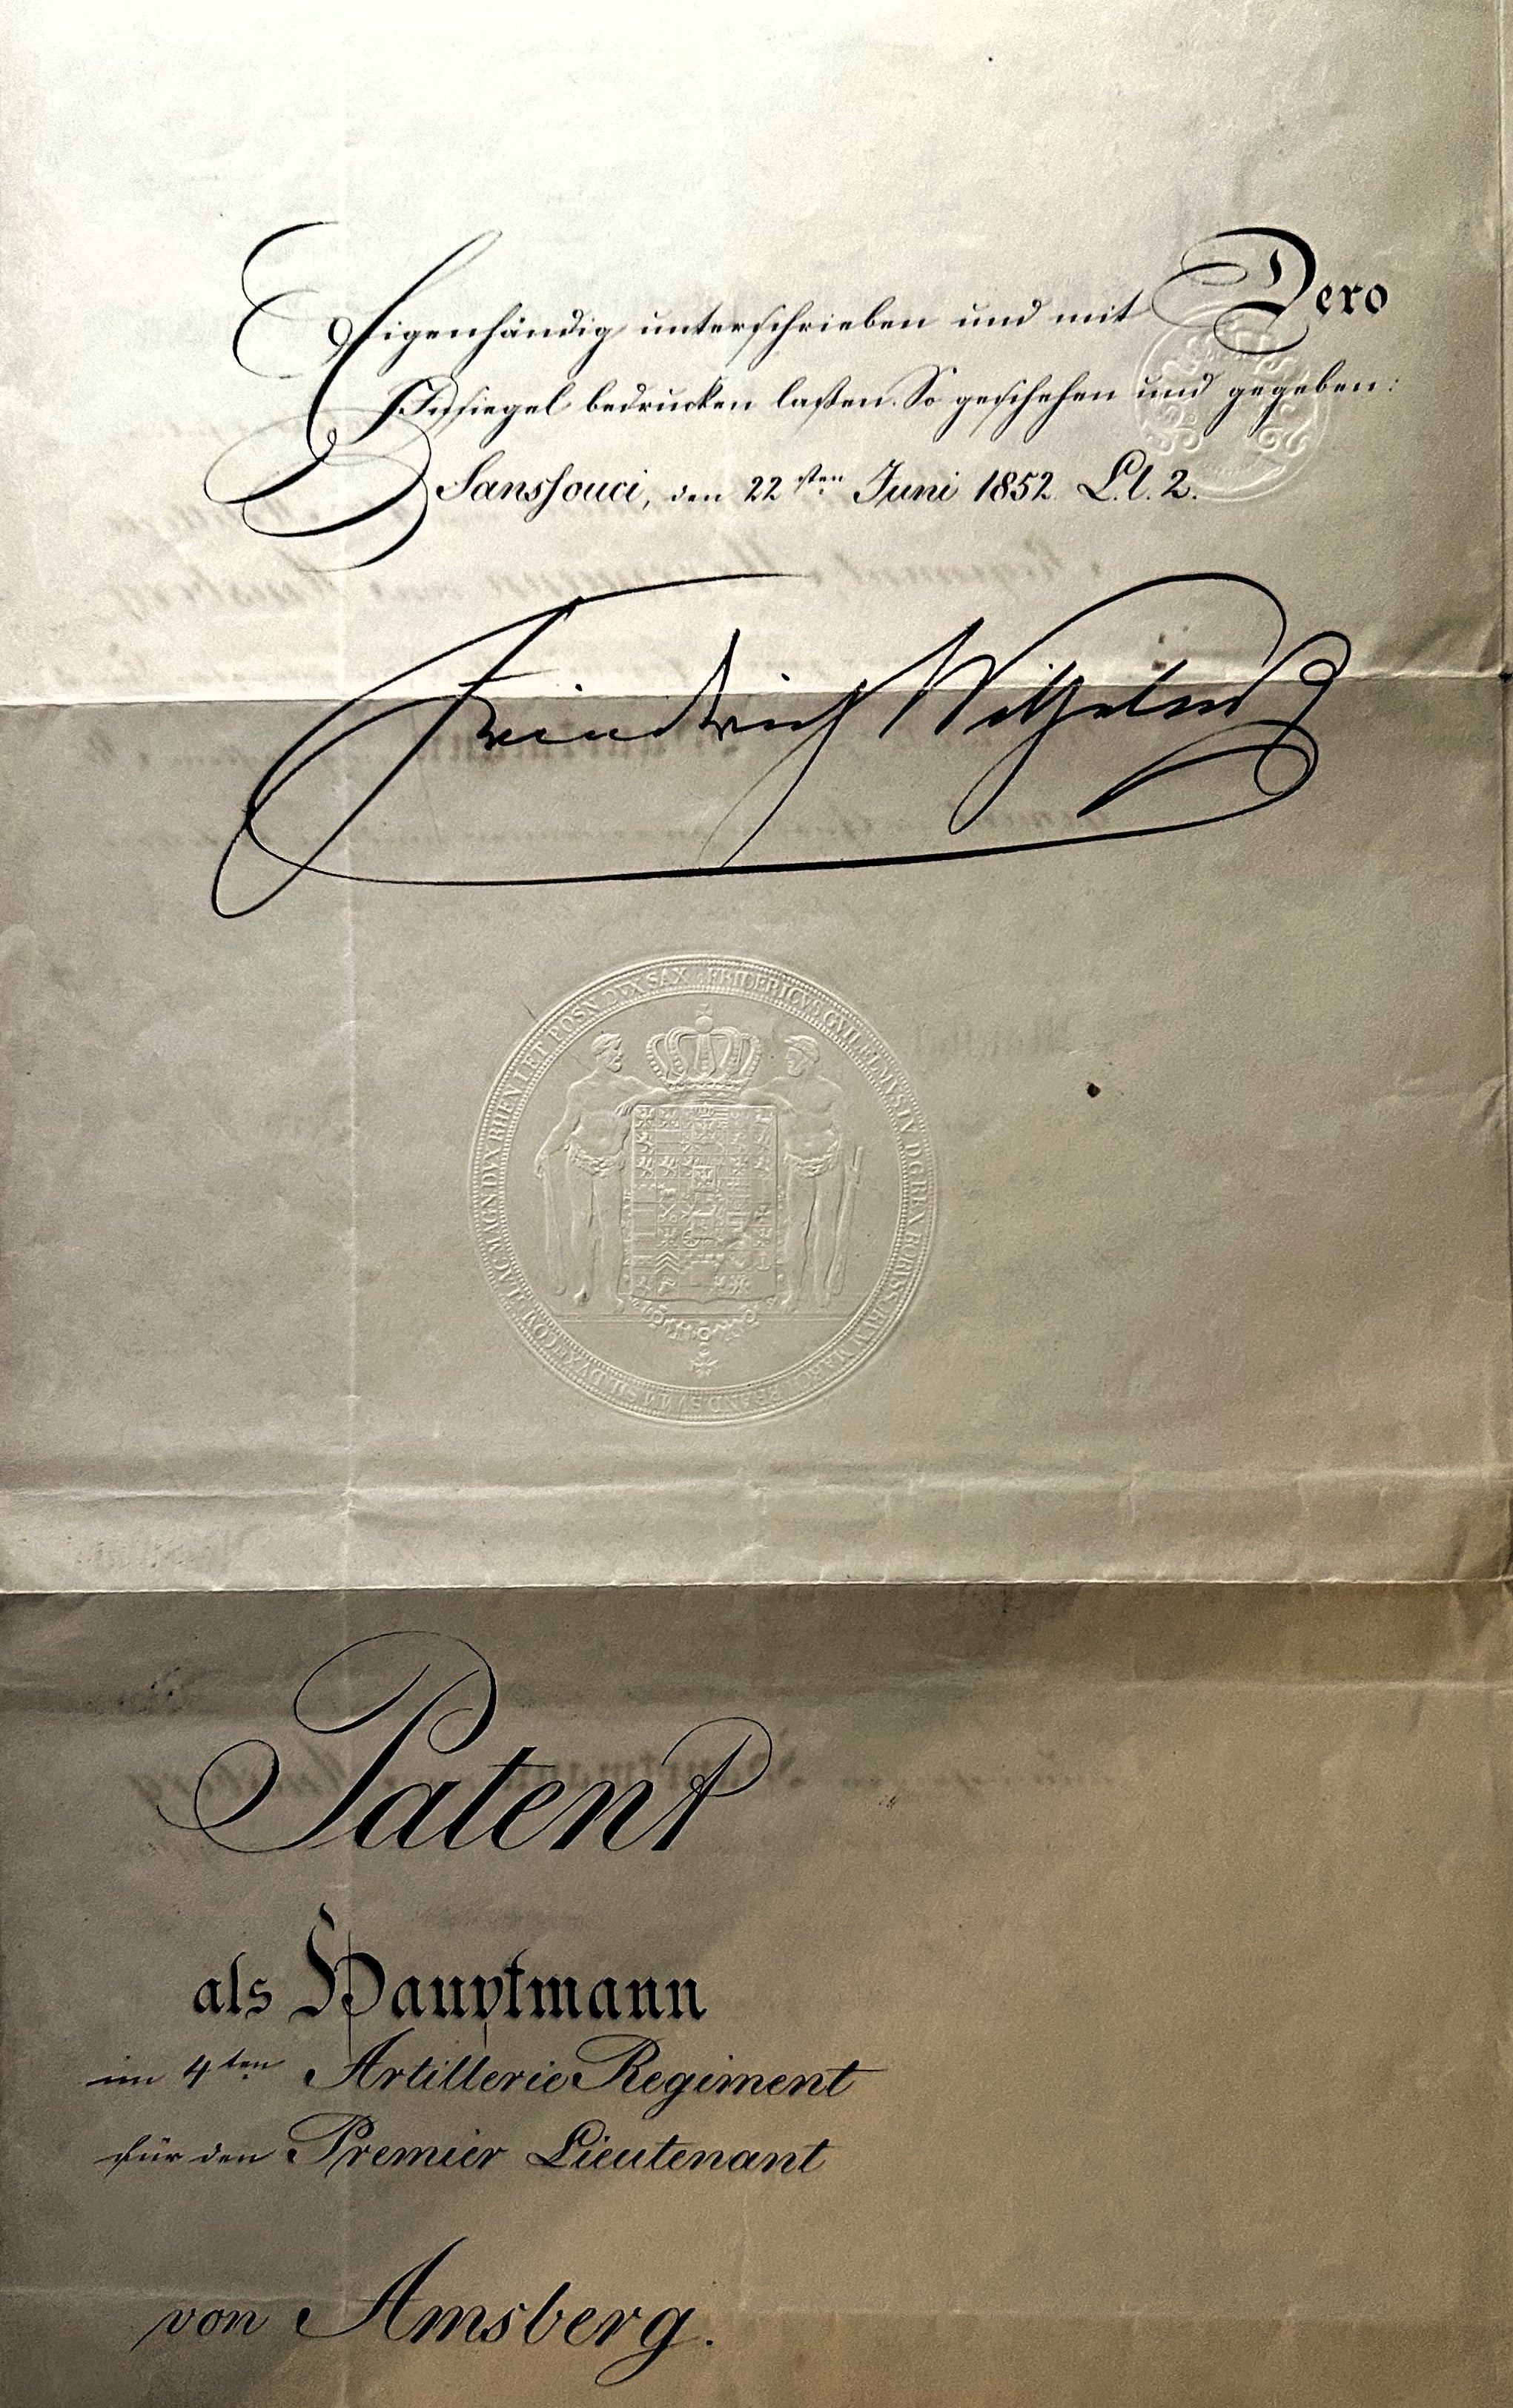 Eigenhändig unterschrieben und mit Dero
Insiegel bedrucken laßen. So geschehen und gegeben:
Sanssouci, den 22sten Juni 1852. L.l. 2.
Friedrich Wilhelm
FRIDERICVS GVILELMVS IV D G REX BORVSSORVM MARC BRAND SVMM SIL DVX ET COM GL AC MAGN DVX RHEN INF ET POSN DVX SAX
Patent
als Hauptmann
im 4ten Artillerie Regiment
für den Premier Lieutenant
von Amsberg.